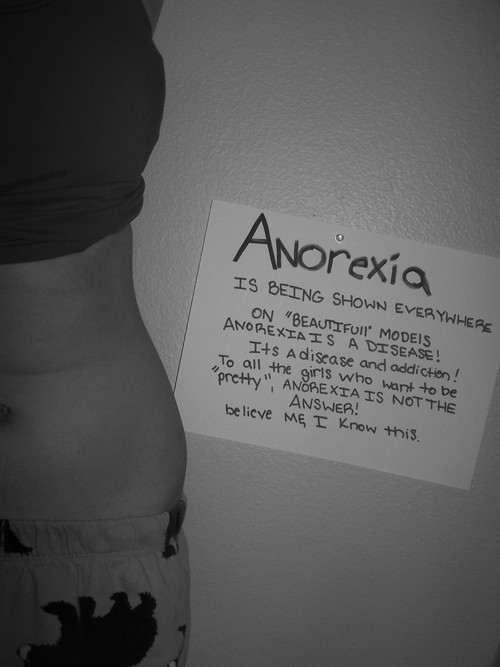 Anorexia
IS BEING SHOWN EVERYWHERE
ON "BEAUTIFUll" MODElS
ANOREXIA IS A DISEASE!
Its a disease and addiction!
To all the girls who want to be
"pretty", ANOREXIA IS NOT THE
ANSWER!
believe ME, I Know this.